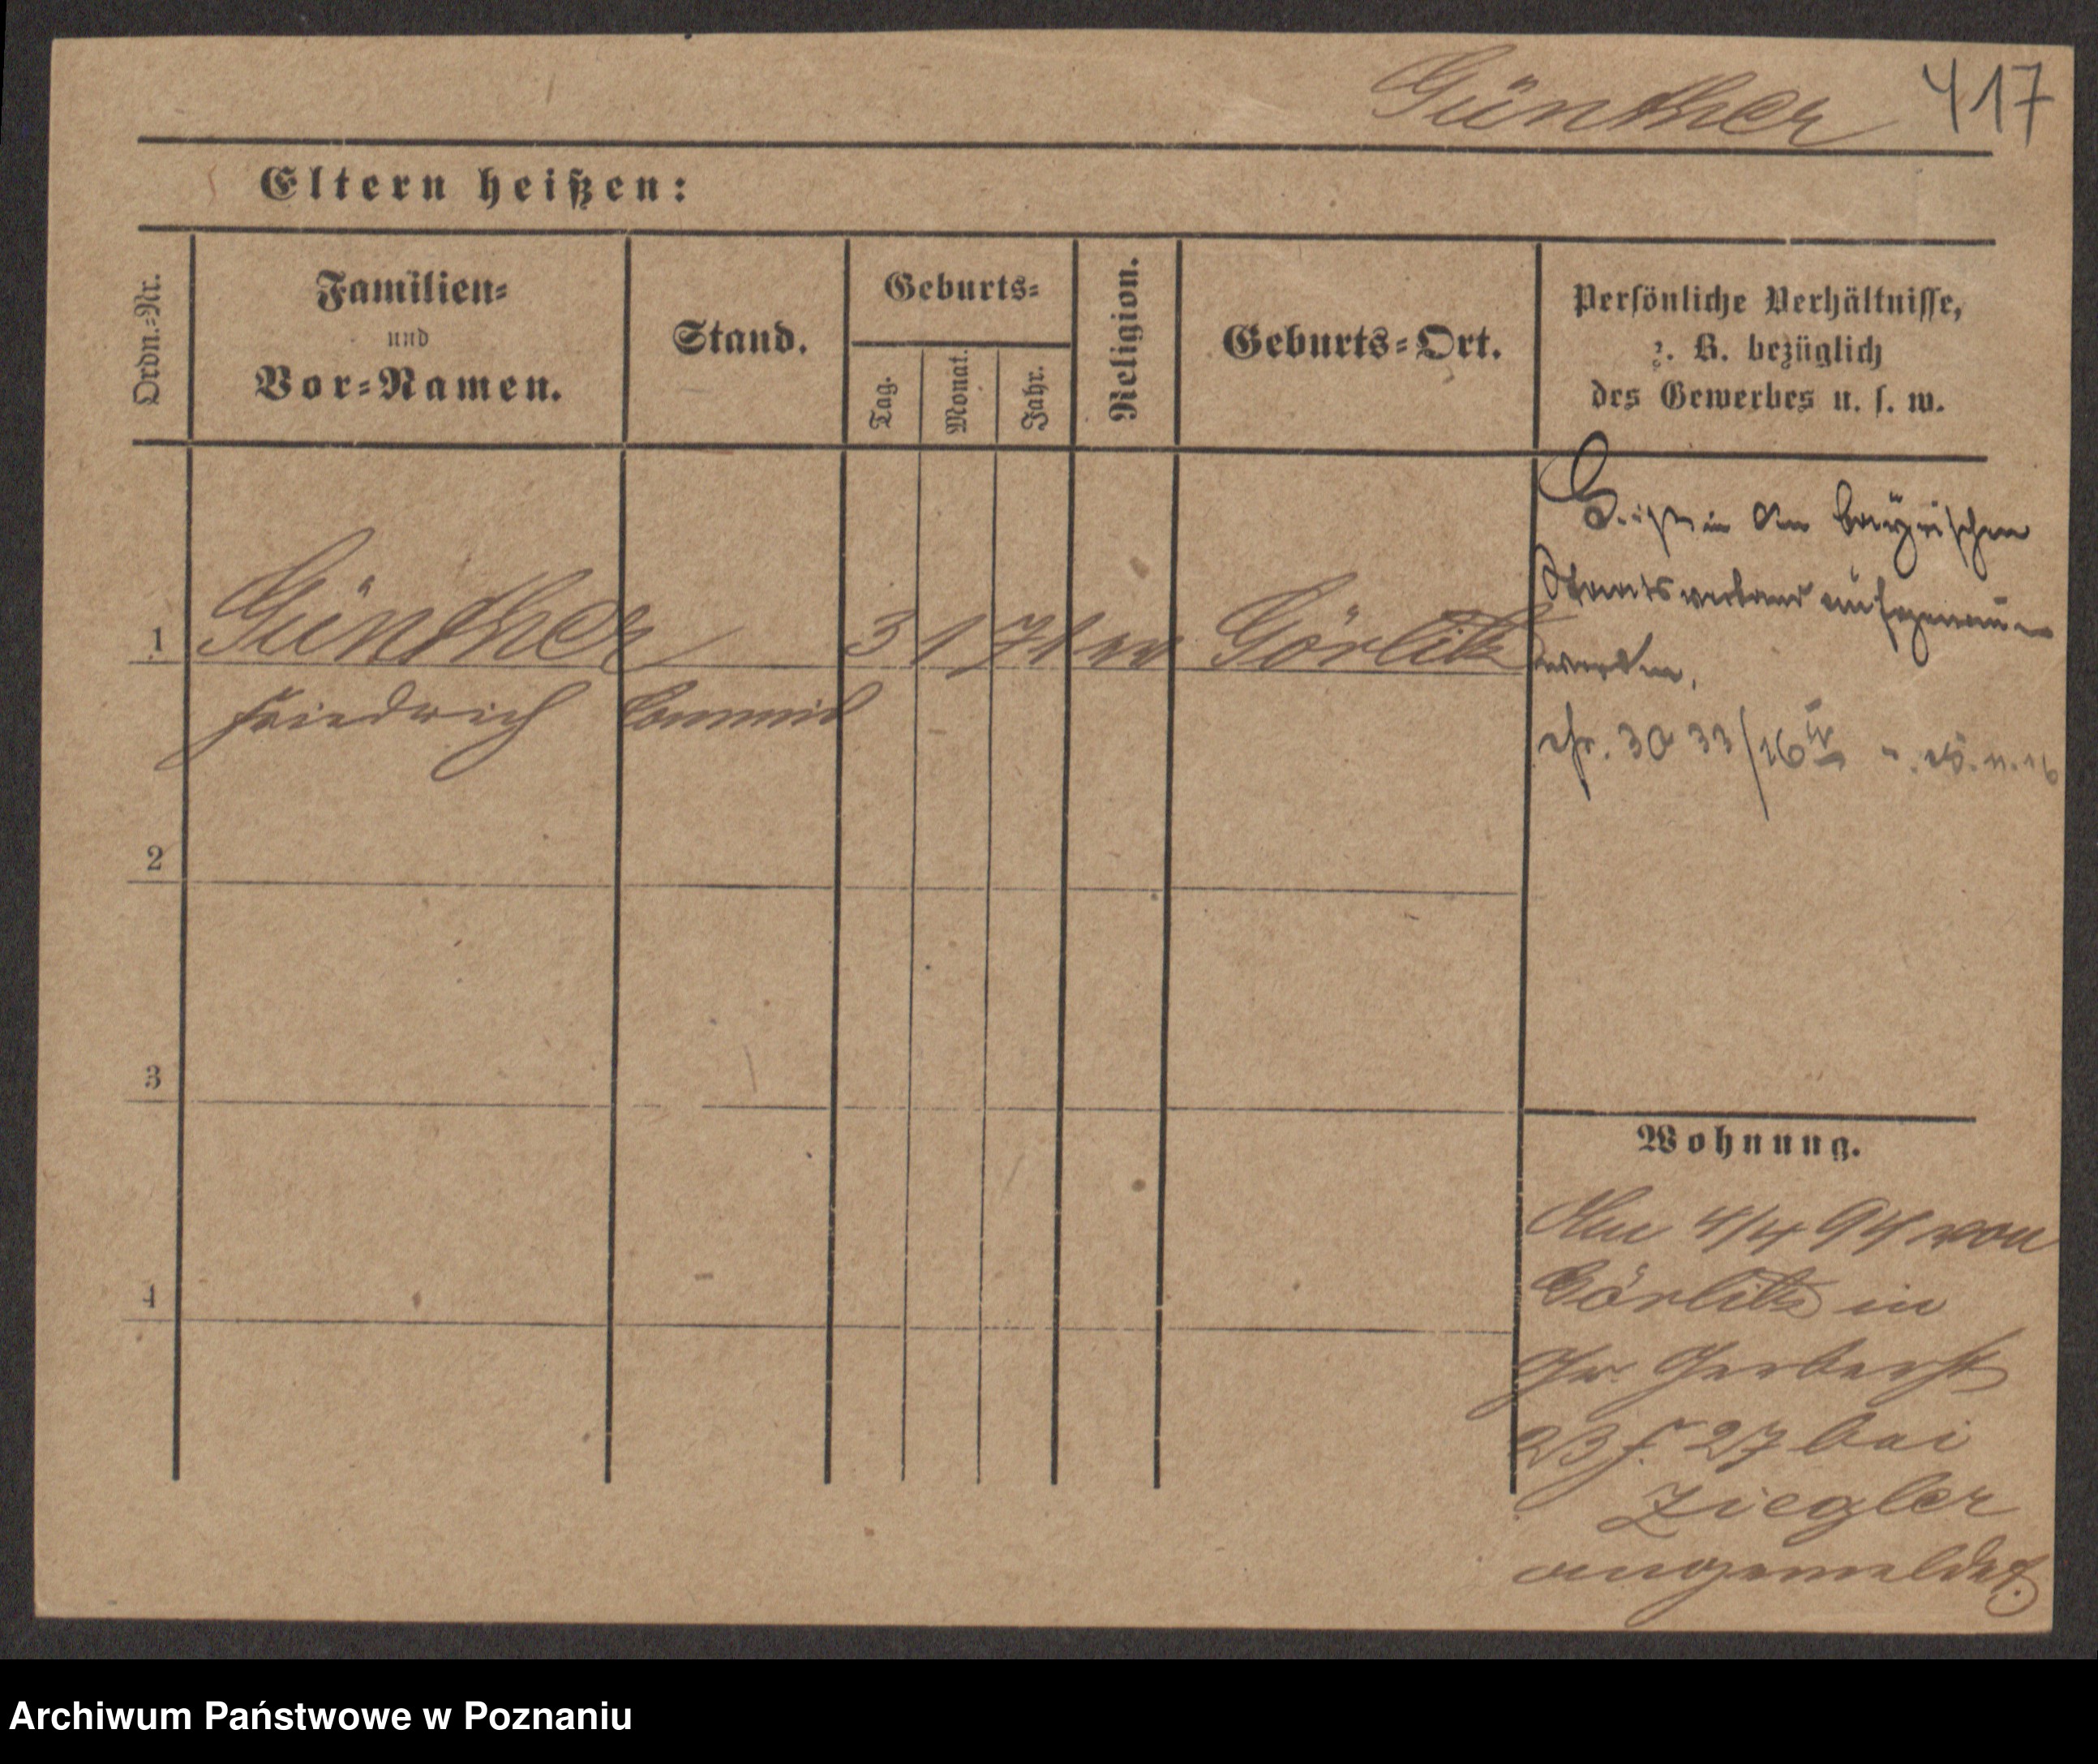 Günther 417
Eltern heißen:
Ordn.-Nr.
Familien-
und
Vor-Namen.
Stand.
Geburts-
Tag.
Monat.
Jahr.
Religion.
Geburts-Ort.
Persönliche Verhältnisse,
z. B. bezüglich
des Gewerbes u. s. w.
1 Günther 3 1 71 ev Görlitz
Friedrich Commis
G. ist in den bayrischen
Staatsverband aufgenommen
worden.
cfr. 30 33/16
2
3
4
Wohnung.
Am 4/4 94 von
Görlitz in
Gr. Gerberst
23 f. 27 bei
Ziegler
angemeldet.
Archiwum Państwowe w Poznaniu